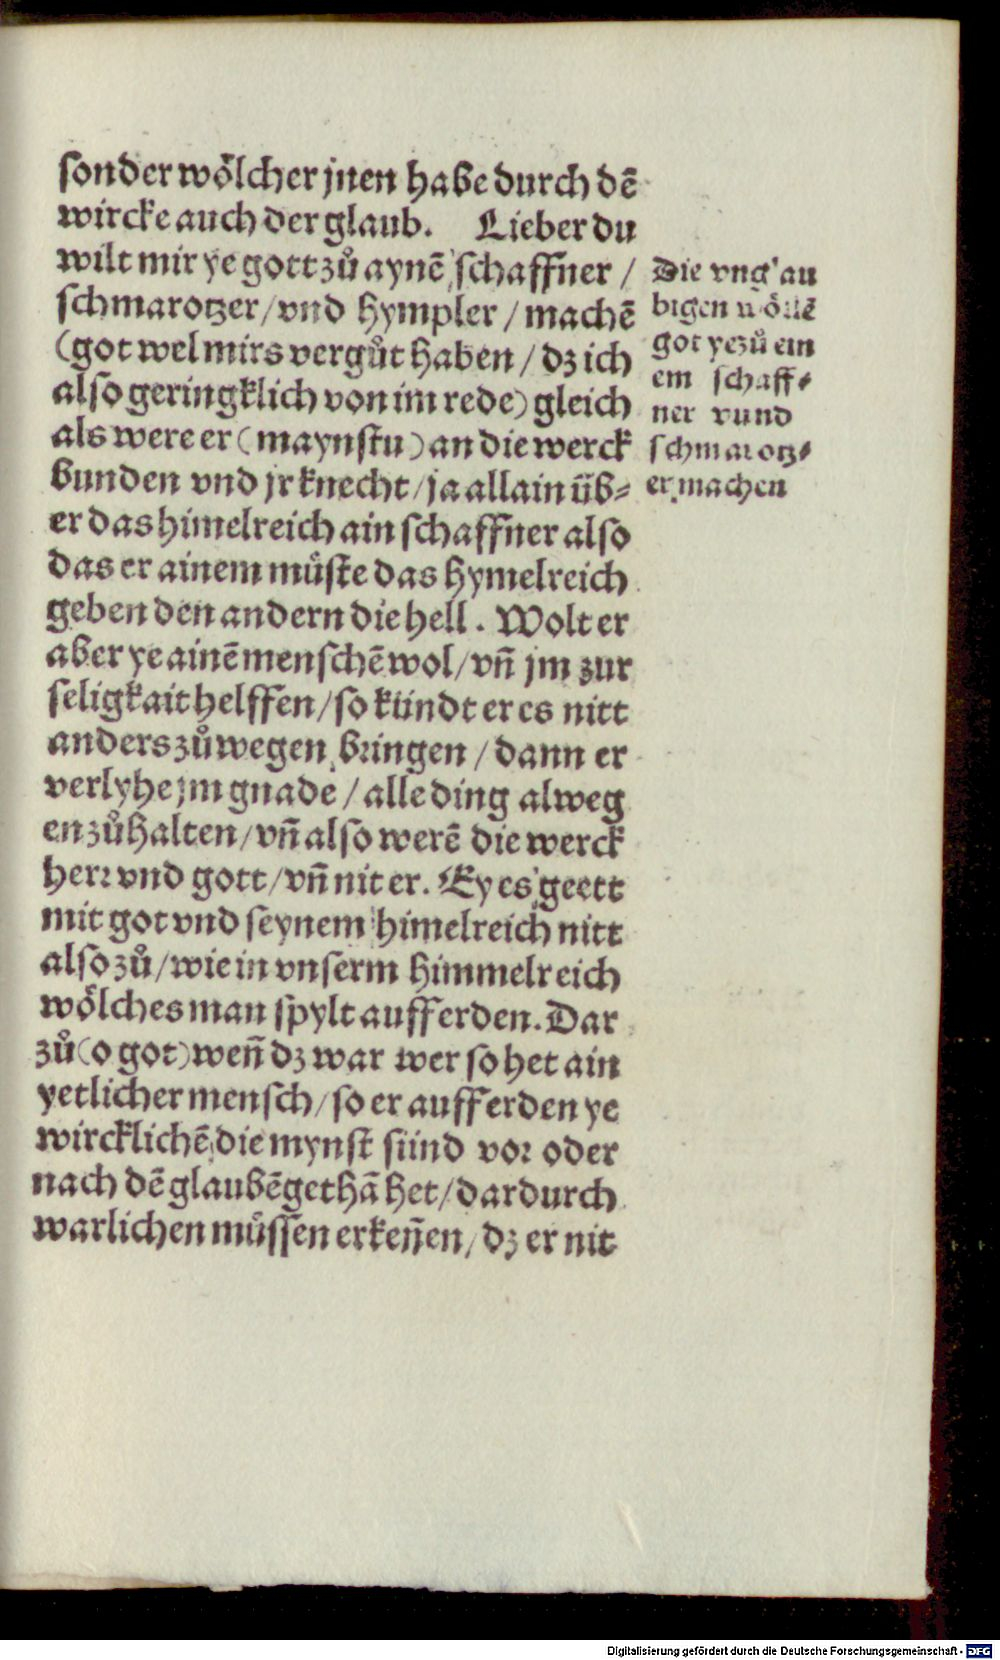 sonder woͤlcher jnen habe durch dē
wircke auch der glaub. Lieber du
wilt mir ye gott zuͦ aynē schaffner /
schmarotzer / vnd hympler / machē
(got wel mirs verguͦt haben / dz ich
also geringklich von im rede) gleich
als were er (maynstu) an die werck
bunden vnd jr knecht / ja allain uͤb⸗
er das himelreich ain schaffner also
das er ainem muͤste das hymelreich
geben den andern die hell. Wolt er
aber ye ainē menschē wol / vñ jm zur
seligkait helffen / so kündt er es nitt
anders zuͦ wegen bringen / dann er
verlyhe jm gnade / alle ding alweg
en zuͦ halten / vñ also werē die werck
herr vnd gott / vñ nit er. Ey es geett
mit got vnd seynem himelreich nitt
also zuͦ / wie in vnserm himmelreich
woͤlches man spylt auff erden. Dar
zuͦ (o got) weñ dz war wer so het ain
yetlicher mensch / so er auff erden ye
wircklichē die mynst sünd vor oder
nach dē glaubē gethā het / dardurch
warlichen muͤssen erkeñen / dz er nit
Die vnglau
bigen woͤllē
got ye zuͦ ein
em schaff⸗
ner vnnd
schmarotz⸗
er machen
Digitalisierung gefördert durch die Deutsche Forschungsgemeinschaft - DFG